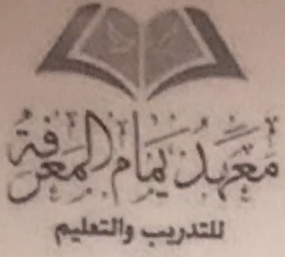 معهد يمام المعرفة
للتدريب والتعليم